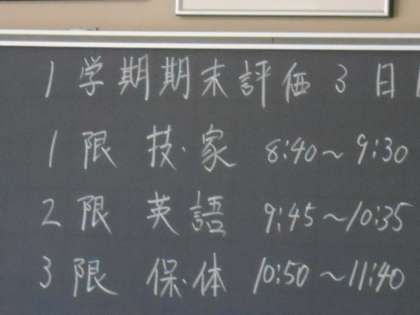 1学期期末評価 3日
1限 技・家 8:40〜9:30
2限 英語 9:45〜10:35
3限 保・体 10:50〜11:40